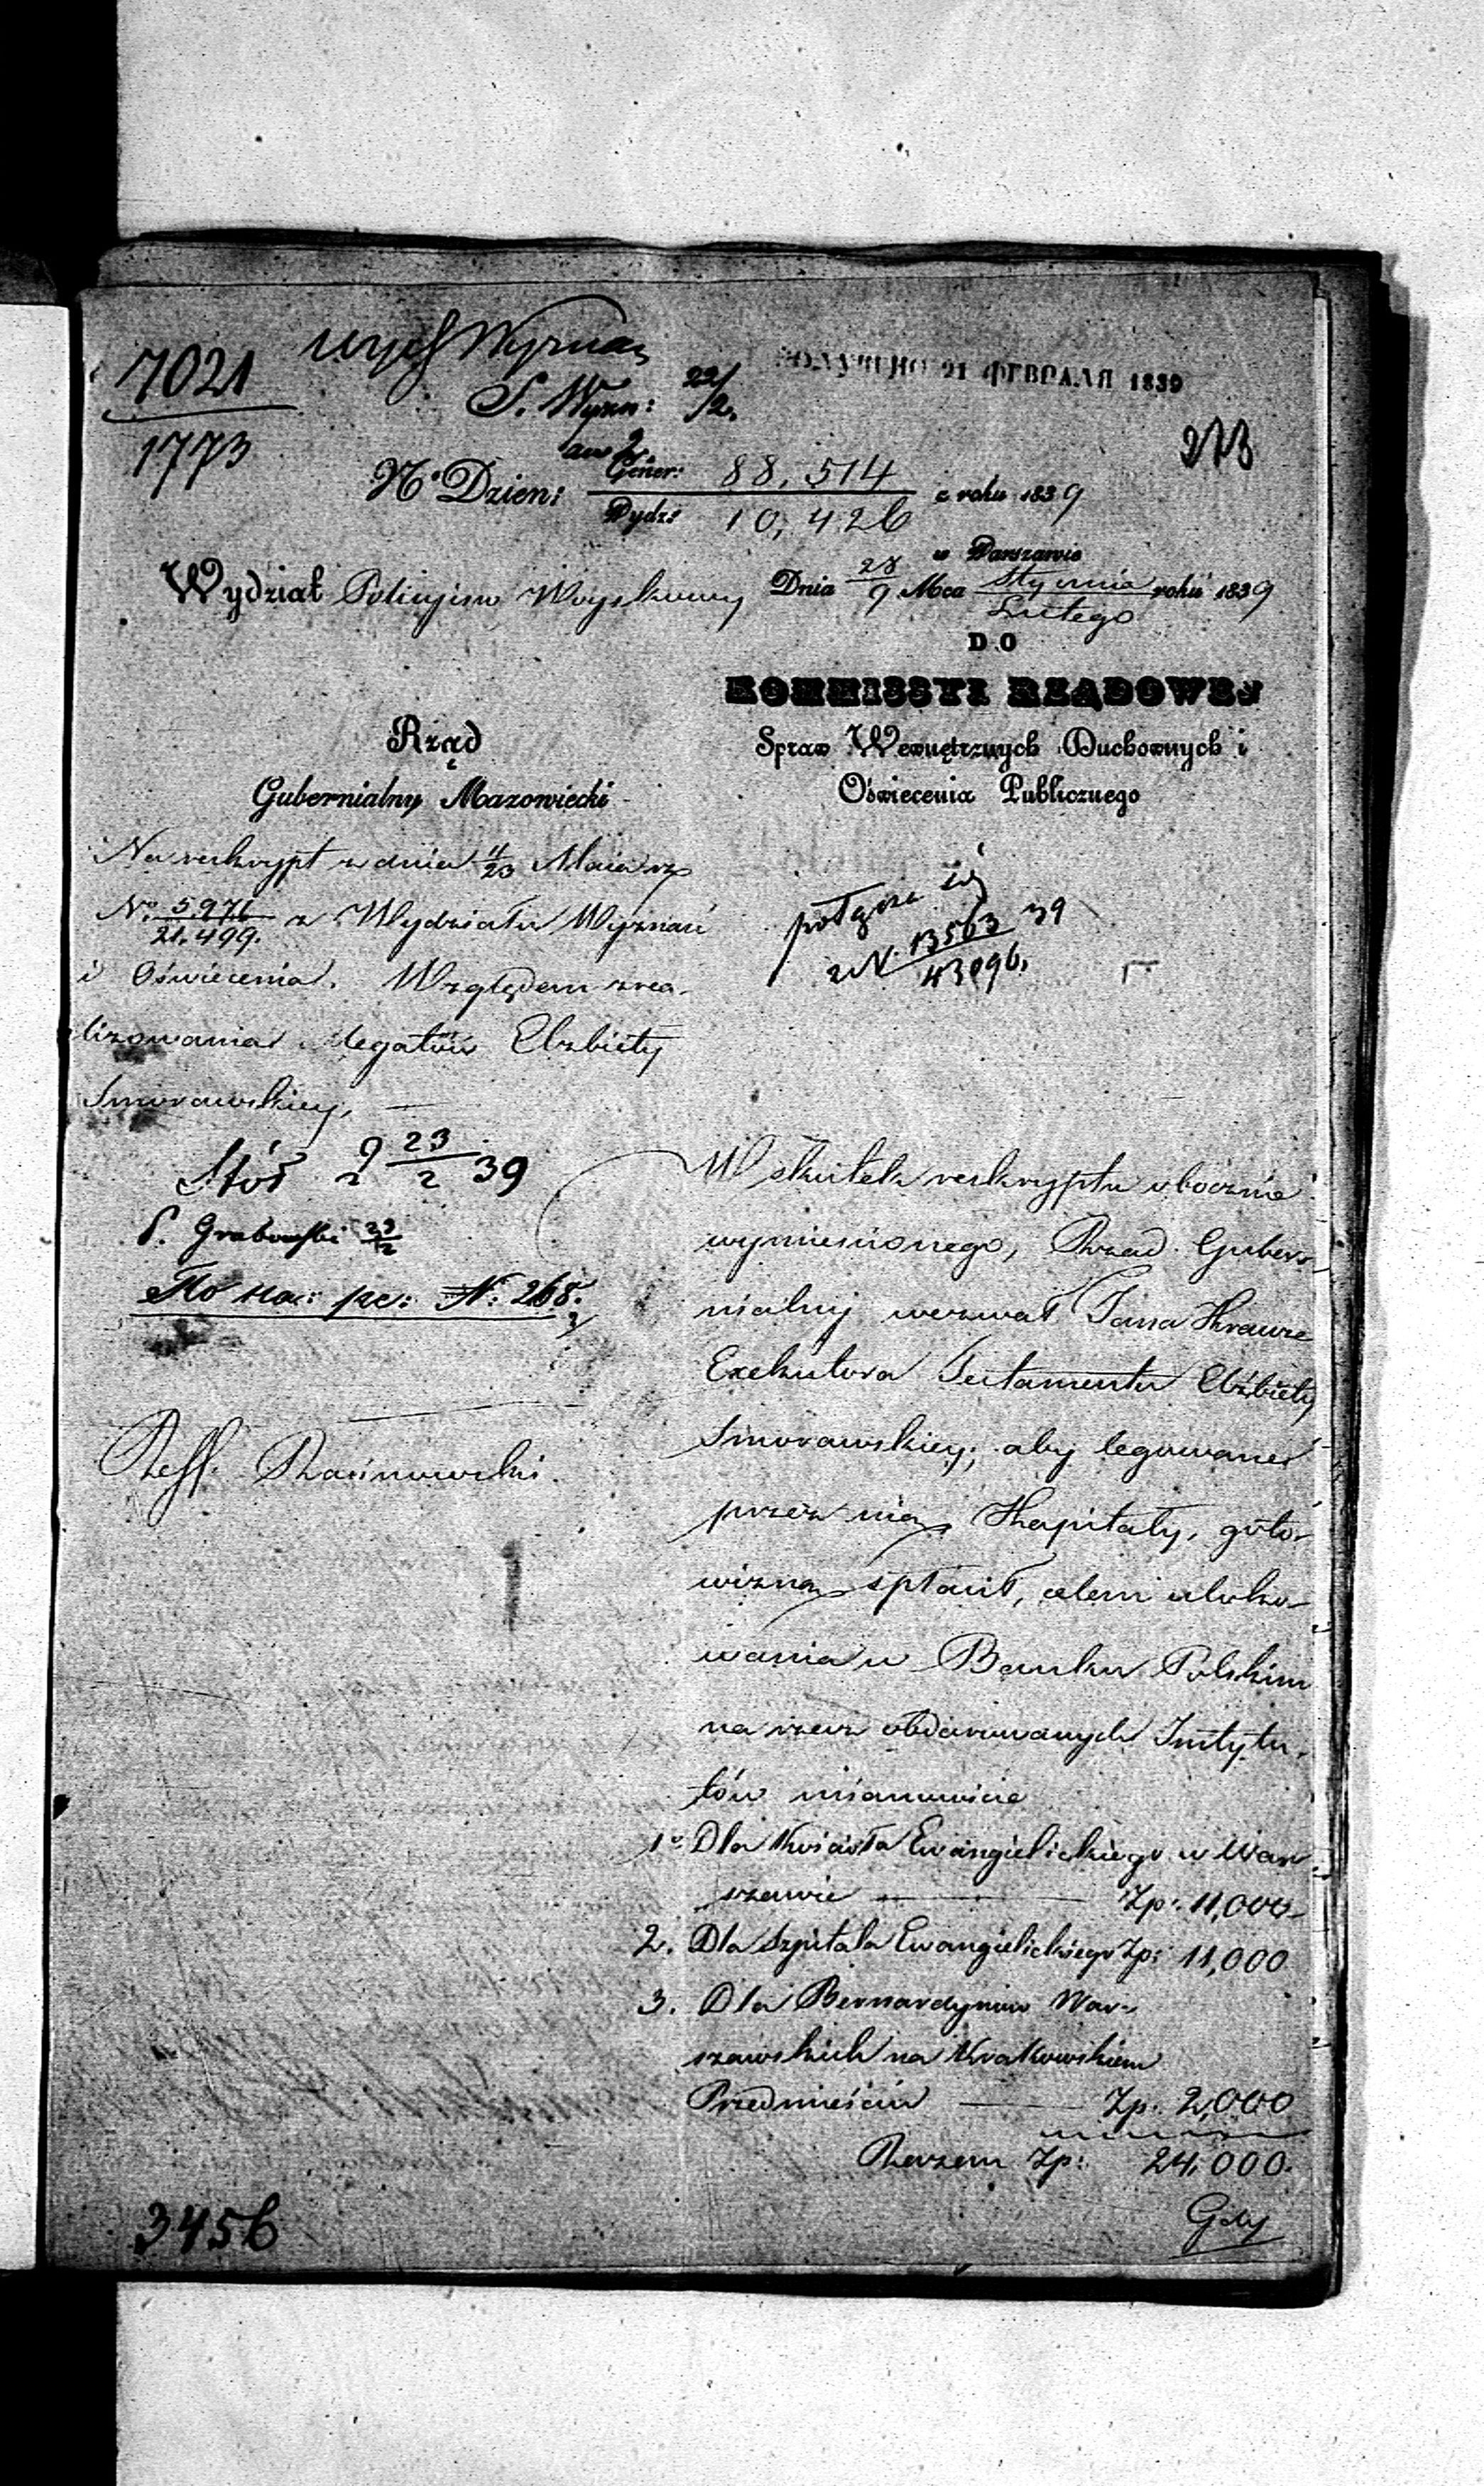 7021
1773
Wyzn:
22/2
ПОЛУЧЕНО 21 ФЕВРАЛЯ 1839
273
N° Dzien: Gener: 88,514 z roku 1839
Wydz: 10,426
w Warszawie
Wydział Policyjno Woyskowy Dnia 28/9 Mca Stycznia/Lutego roku 1839
DO
KOMMISSYI RZĄDOWEJ
Rząd
Spraw Wewnętrznych Duchownych i
Gubernialny Mazowiecki
Oświecenia Publicznego
Na reskrypt z dnia 11/23 Maia rz
No. 5976/21,499. z Wydziału Wyznań
i Oświecenia. Względem zrea-
lizowania legatów Elzbiety
Smorawskiey,
połączyć z N. 13563/43096. 39
23/2 39
P. Grabowski 23/2
N: 268.
Reff.
W skutek reskryptu ubocznie
wymienionego, Rząd Guber-
nialny wezwał Jana Krauze
Exekutora Testamentu Elżbiety
Smorawskiey, aby legowane
przez nią Kapitały, goto-
wizną spłacił, celem uloko-
wania w Banku Polskim
na rzecz obdarowanych Instytu-
tów mianowicie
1° Dla Kościoła Ewangielickiego w War-
szawie — Zp: 11,000
2. Dla Szpitala Ewangielickiego Zp: 11,000
3. Dla Bernardynów War-
szawskich na Krakowskiem
Przedmieściu — Zp. 2,000
Razem Zp: 24,000.
Gdy
3456